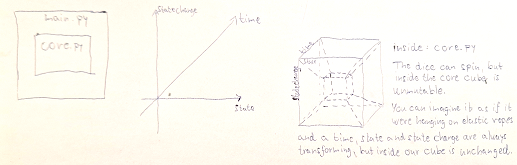 main.py
core.py
statecharge
time
state
time
state
statecharge
inside: core.py
The dice can spin, but
inside the core cube, is
unmutable.
You can imagine it as if it
were hanging on elastic ropes
and a time, state and state charge are always
transforming, but inside our cube is unchanged.